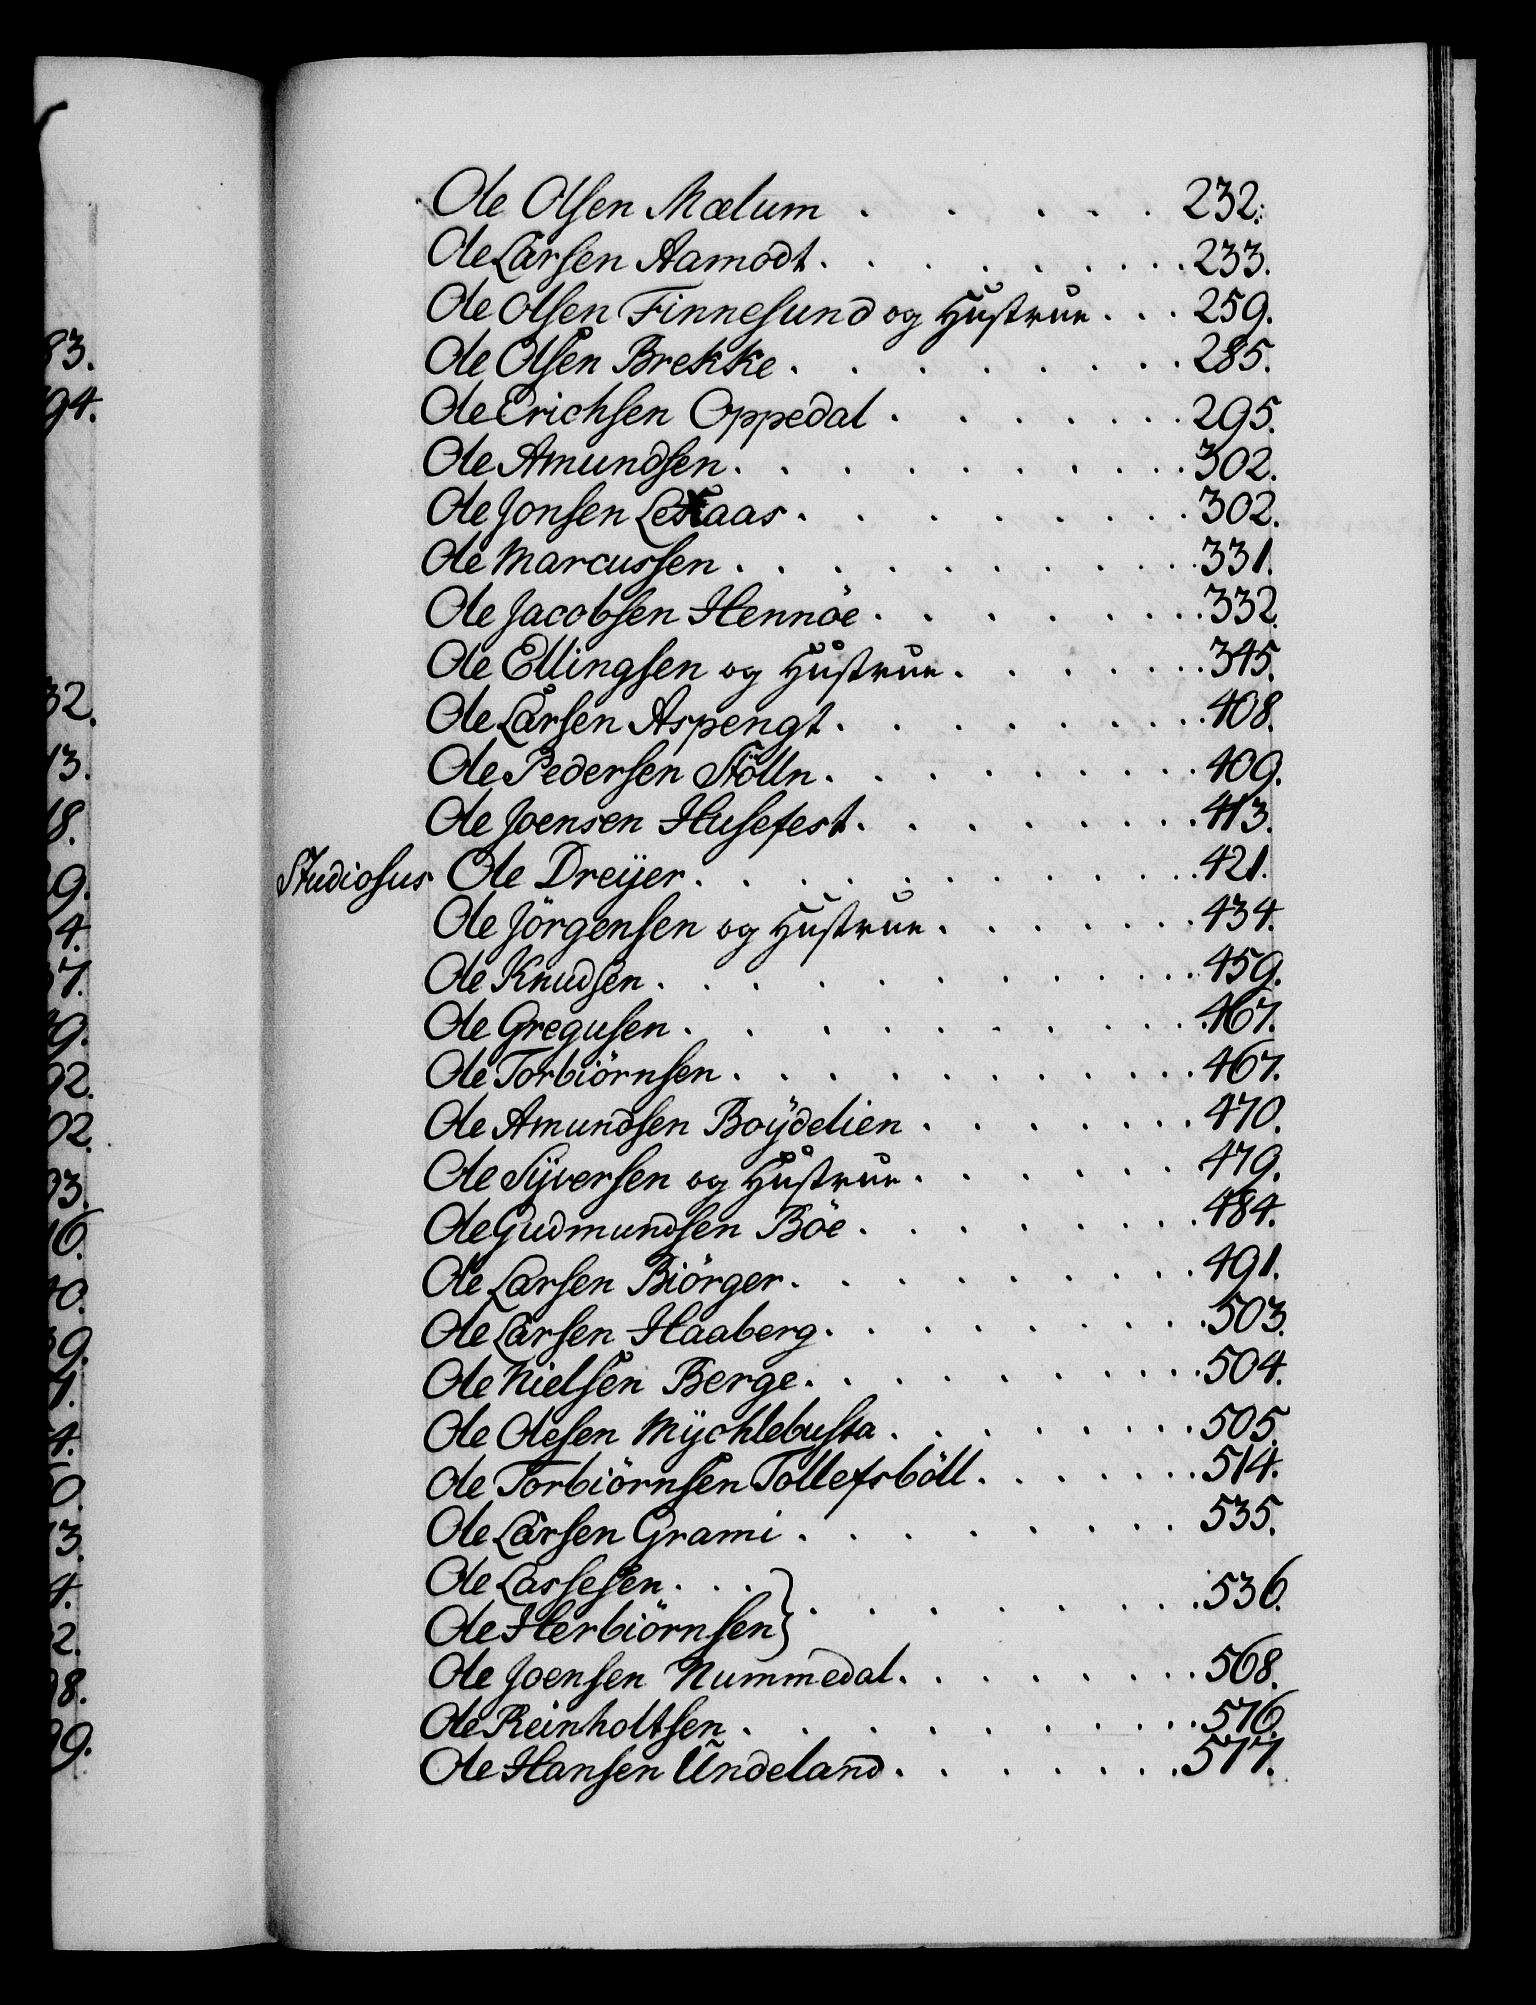 Ole Olsen Mælum . . . . . . 232.
Ole Larsen Aamodt . . . . . . . . 233.
Ole Olsen Finnesund og Hustrue . . . 259.
Ole Olsen Brekke . . . . . . . . 285.
Ole Erichsen Oppedal . . . . . . . 295.
Ole Amundsen . . . . . . . . . 302.
Ole Jonsen . . . . . . . . 302.
Ole Marcussen . . . . . . . . . 331.
Ole Jacobsen Hennöe . . . . . . . 332
Ole Ellingsen og Hustrue . . . . . . 345.
Ole Larsen Aspengt . . . . . . . . 408.
Ole Pedersen Stölln . . . . . . . . 409.
Ole Joensen Husefest . . . . . . . 413.
Studiosus Ole Dreÿer . . . . . . . . . . 421.
Ole Jörgensen og Hustrue . . . . . . 434.
Ole Knudsen . . . . . . . . . . 459.
Ole Gregusen . . . . . . . . . 467.
Ole Torbiörnsen . . . . . . . . . 467.
Ole Amundsen Boÿdelien . . . . . . 470.
Ole Sÿversen og Hustrue . . . . . . 479.
Ole Gudmundsen Böe . . . . . . . 484.
Ole Larsen Biörger . . . . . . . . 491.
Ole Larsen Haaberg . . . . . . . . 503.
Ole Nielsen Berge . . . . . . . . . 504.
Ole Olesen Mÿchlebusta . . . . . . . 505.
Ole Torbiörnsen Tollefsböll . . . . . . 514.
Ole Larsen Grami . . . . . . . . 535.
Ole Lassesen . . . } . . . . . . . 536.
Ole Herbiörnsen }
Ole Joensen Nummedal . . . . . . . 568.
Ole Reinholtsen . . . . . . . . . 576.
Ole Hansen Undeland . . . . . . . 577.